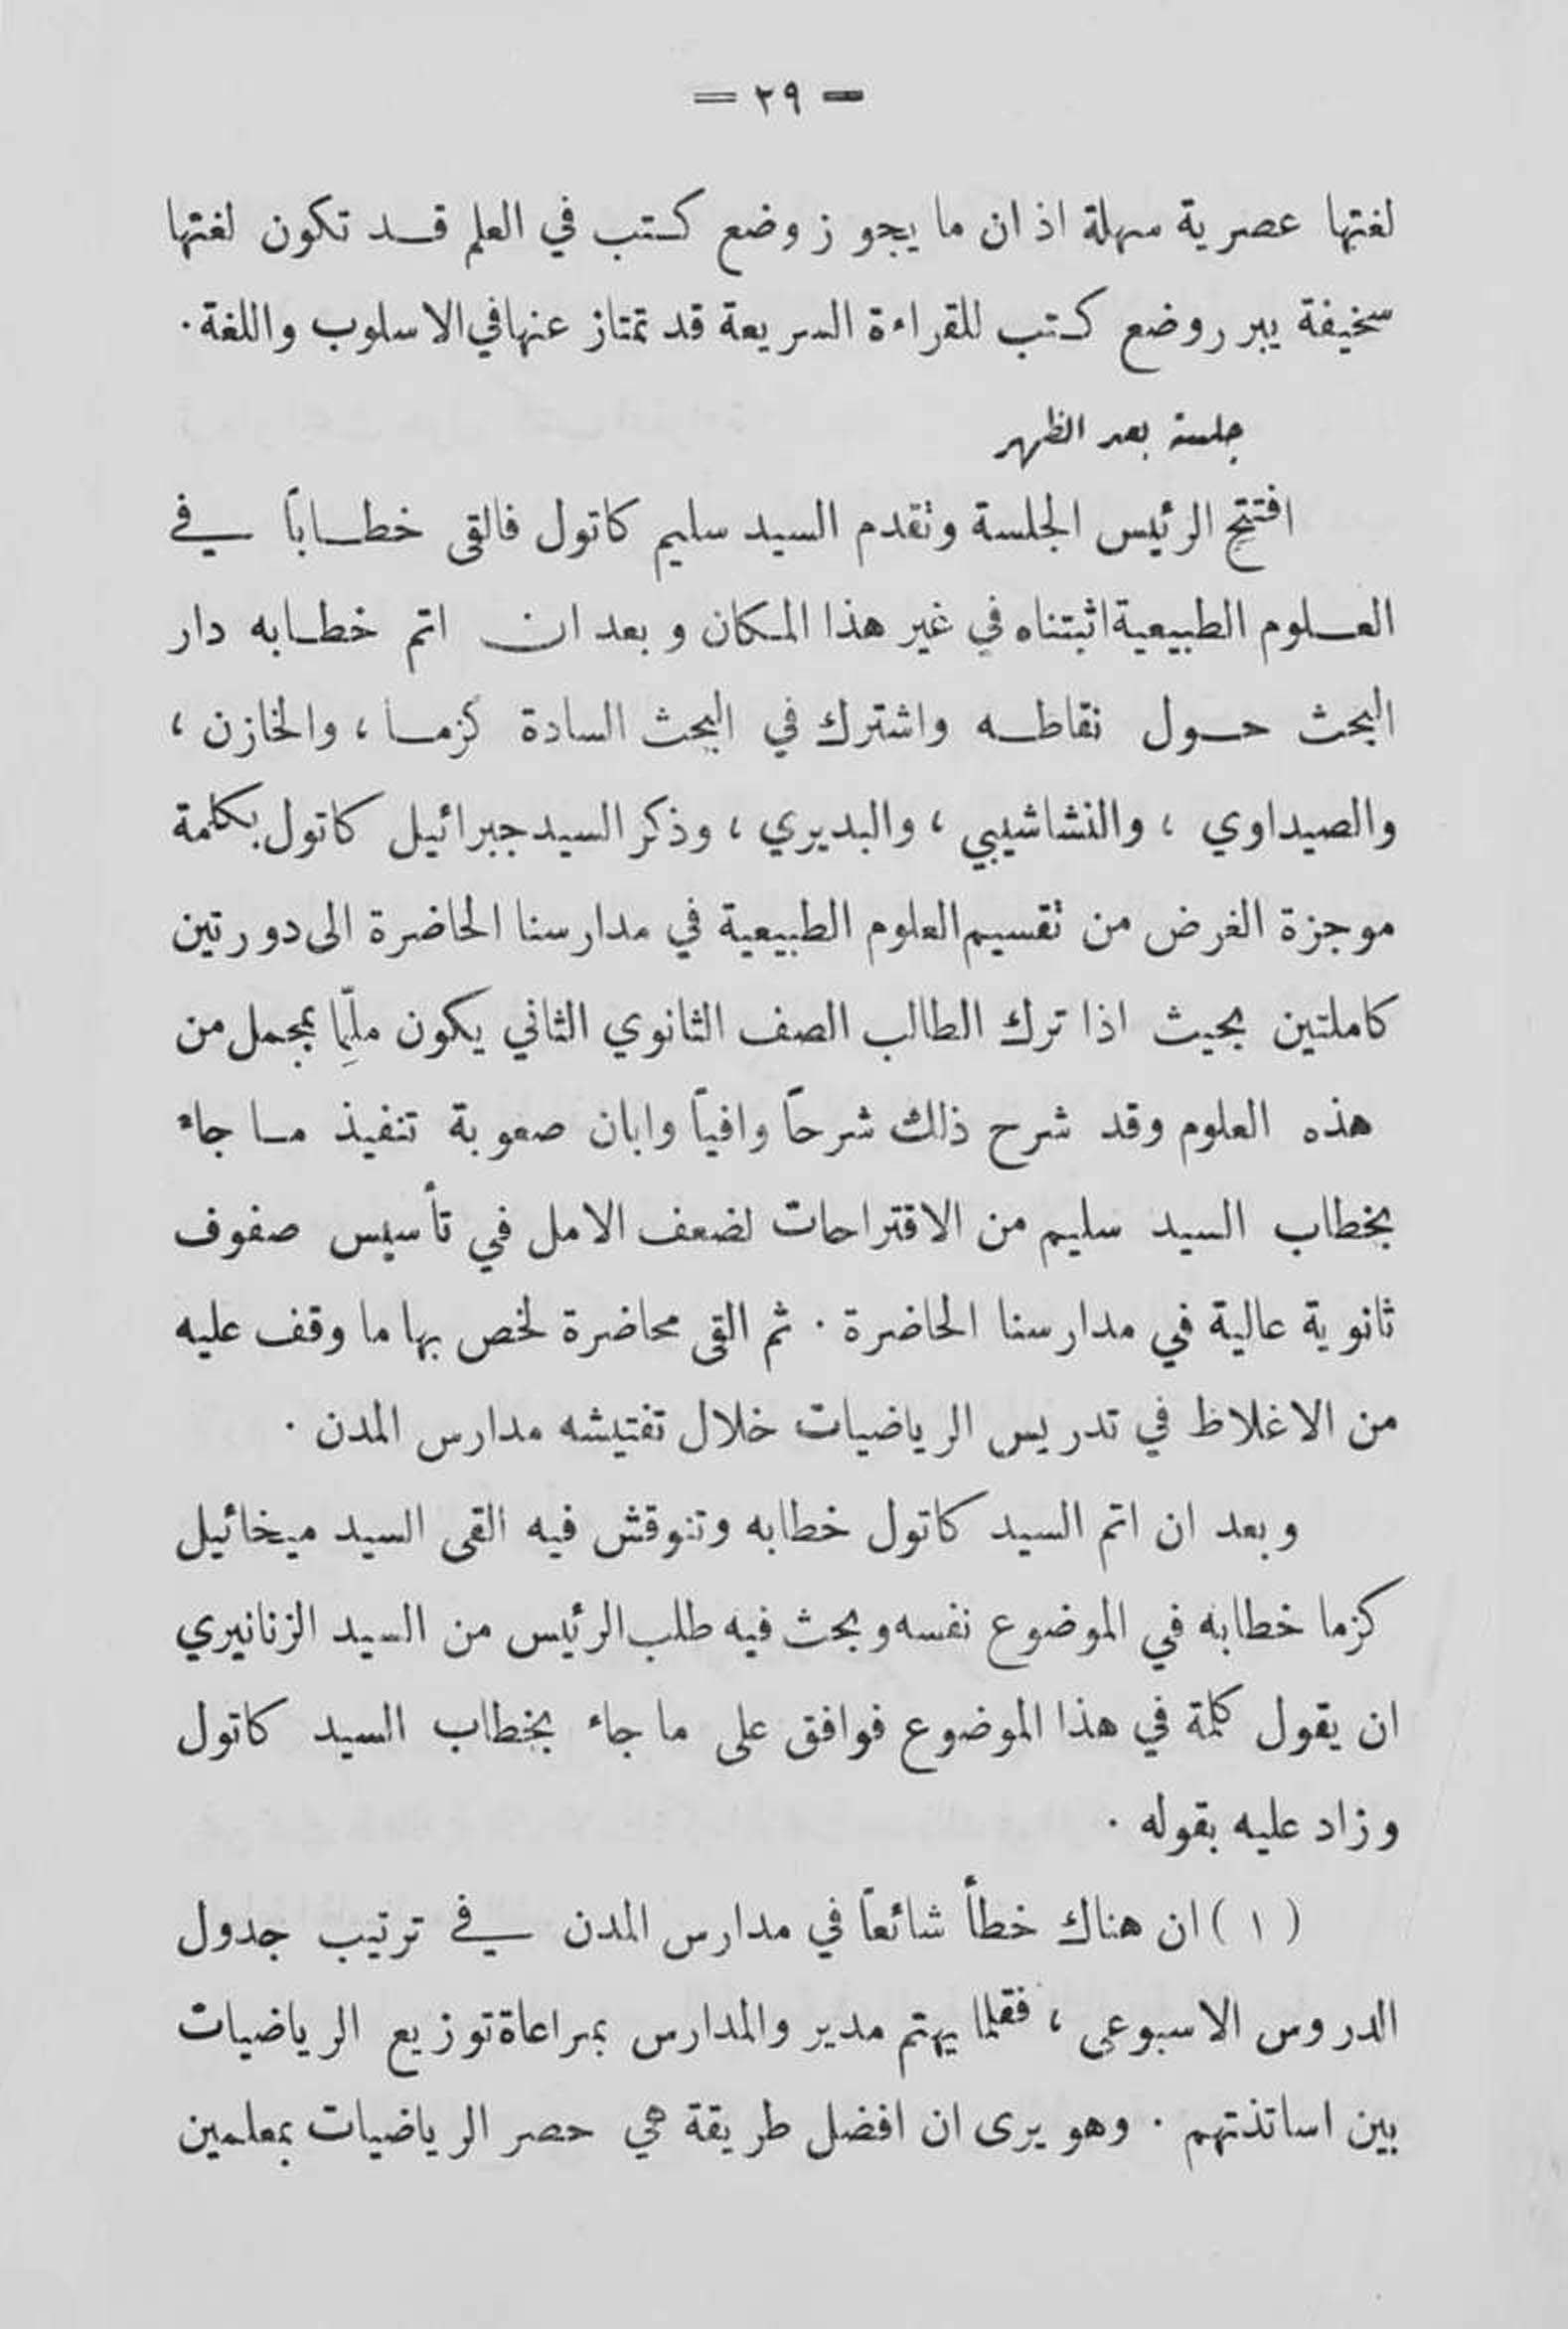 = ٢٩ =
لغتها عصرية سهلة اذ ان ما يجوز وضع كتب في العلم قد تكون لغتها
سخيفة يبرر وضع كتب للقراءة السريعة قد تمتاز عنها في الاسلوب واللغة .
جلسة بعد الظهر
افتتح الرئيس الجلسة وتقدم السيد سليم كاتول فالقى خطاباً في
العلوم الطبيعية اثبتناه في غير هذا المكان وبعد ان اتم خطابه دار
البحث حول نقاطه واشترك في البحث السادة كزما ، والخازن ،
والصيداوي ، والنشاشيبي ، والبديري ، وذكر السيد جبرائيل كاتول بكلمة
موجزة الغرض من تقسيم العلوم الطبيعية في مدارسنا الحاضرة الى دورتين
كاملتين بحيث اذا ترك الطالب الصف الثانوي الثاني يكون ملمِّا بمجمل من
هذه العلوم وقد شرح ذلك شرحاً وافياً وابان صعوبة تنفيذ ما جاء
بخطاب السيد سليم من الاقتراحات لضعف الامل في تأسيس صفوف
ثانوية عالية في مدارسنا الحاضرة . ثم القى محاضرة لخص بها ما وقف عليه
من الاغلاط في تدريس الرياضيات خلال تفتيشه مدارس المدن .
وبعد ان اتم السيد كاتول خطابه وتنوقش فيه القى السيد ميخائيل
كزما خطابه في الموضوع نفسه وبحث فيه طلب الرئيس من السيد الزنانيري
ان يقول كلمة في هذا الموضوع فوافق على ما جاء بخطاب السيد كاتول
وزاد عليه بقوله .
( ١ ) ان هناك خطأ شائعاً في مدارس المدن في ترتيب جدول
الدروس الاسبوعي ، فقلما يهتم مديرو المدارس بمراعاة توزيع الرياضيات
بين اساتذتهم . وهو يرى ان افضل طريقة هي حصر الرياضيات بمعلمين